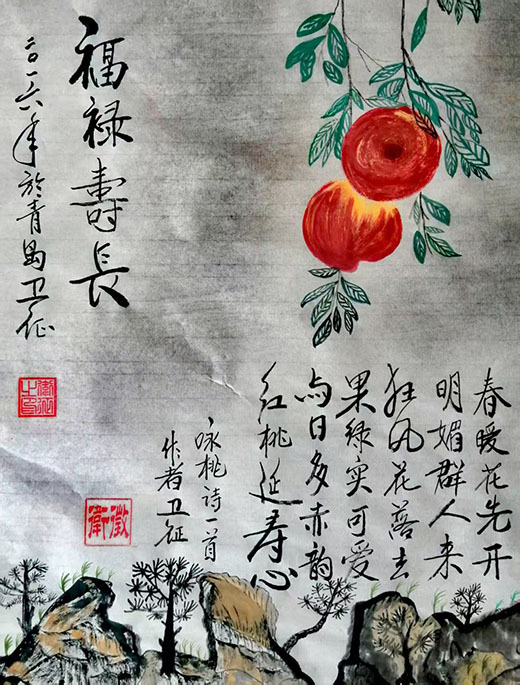 春暖花先开
明媚群人来
狂风花落去
果绿实可爱
与日多赤韵
红桃延寿心
咏桃诗一首
作者卫征
福禄壽長
二〇一六年於青岛卫征